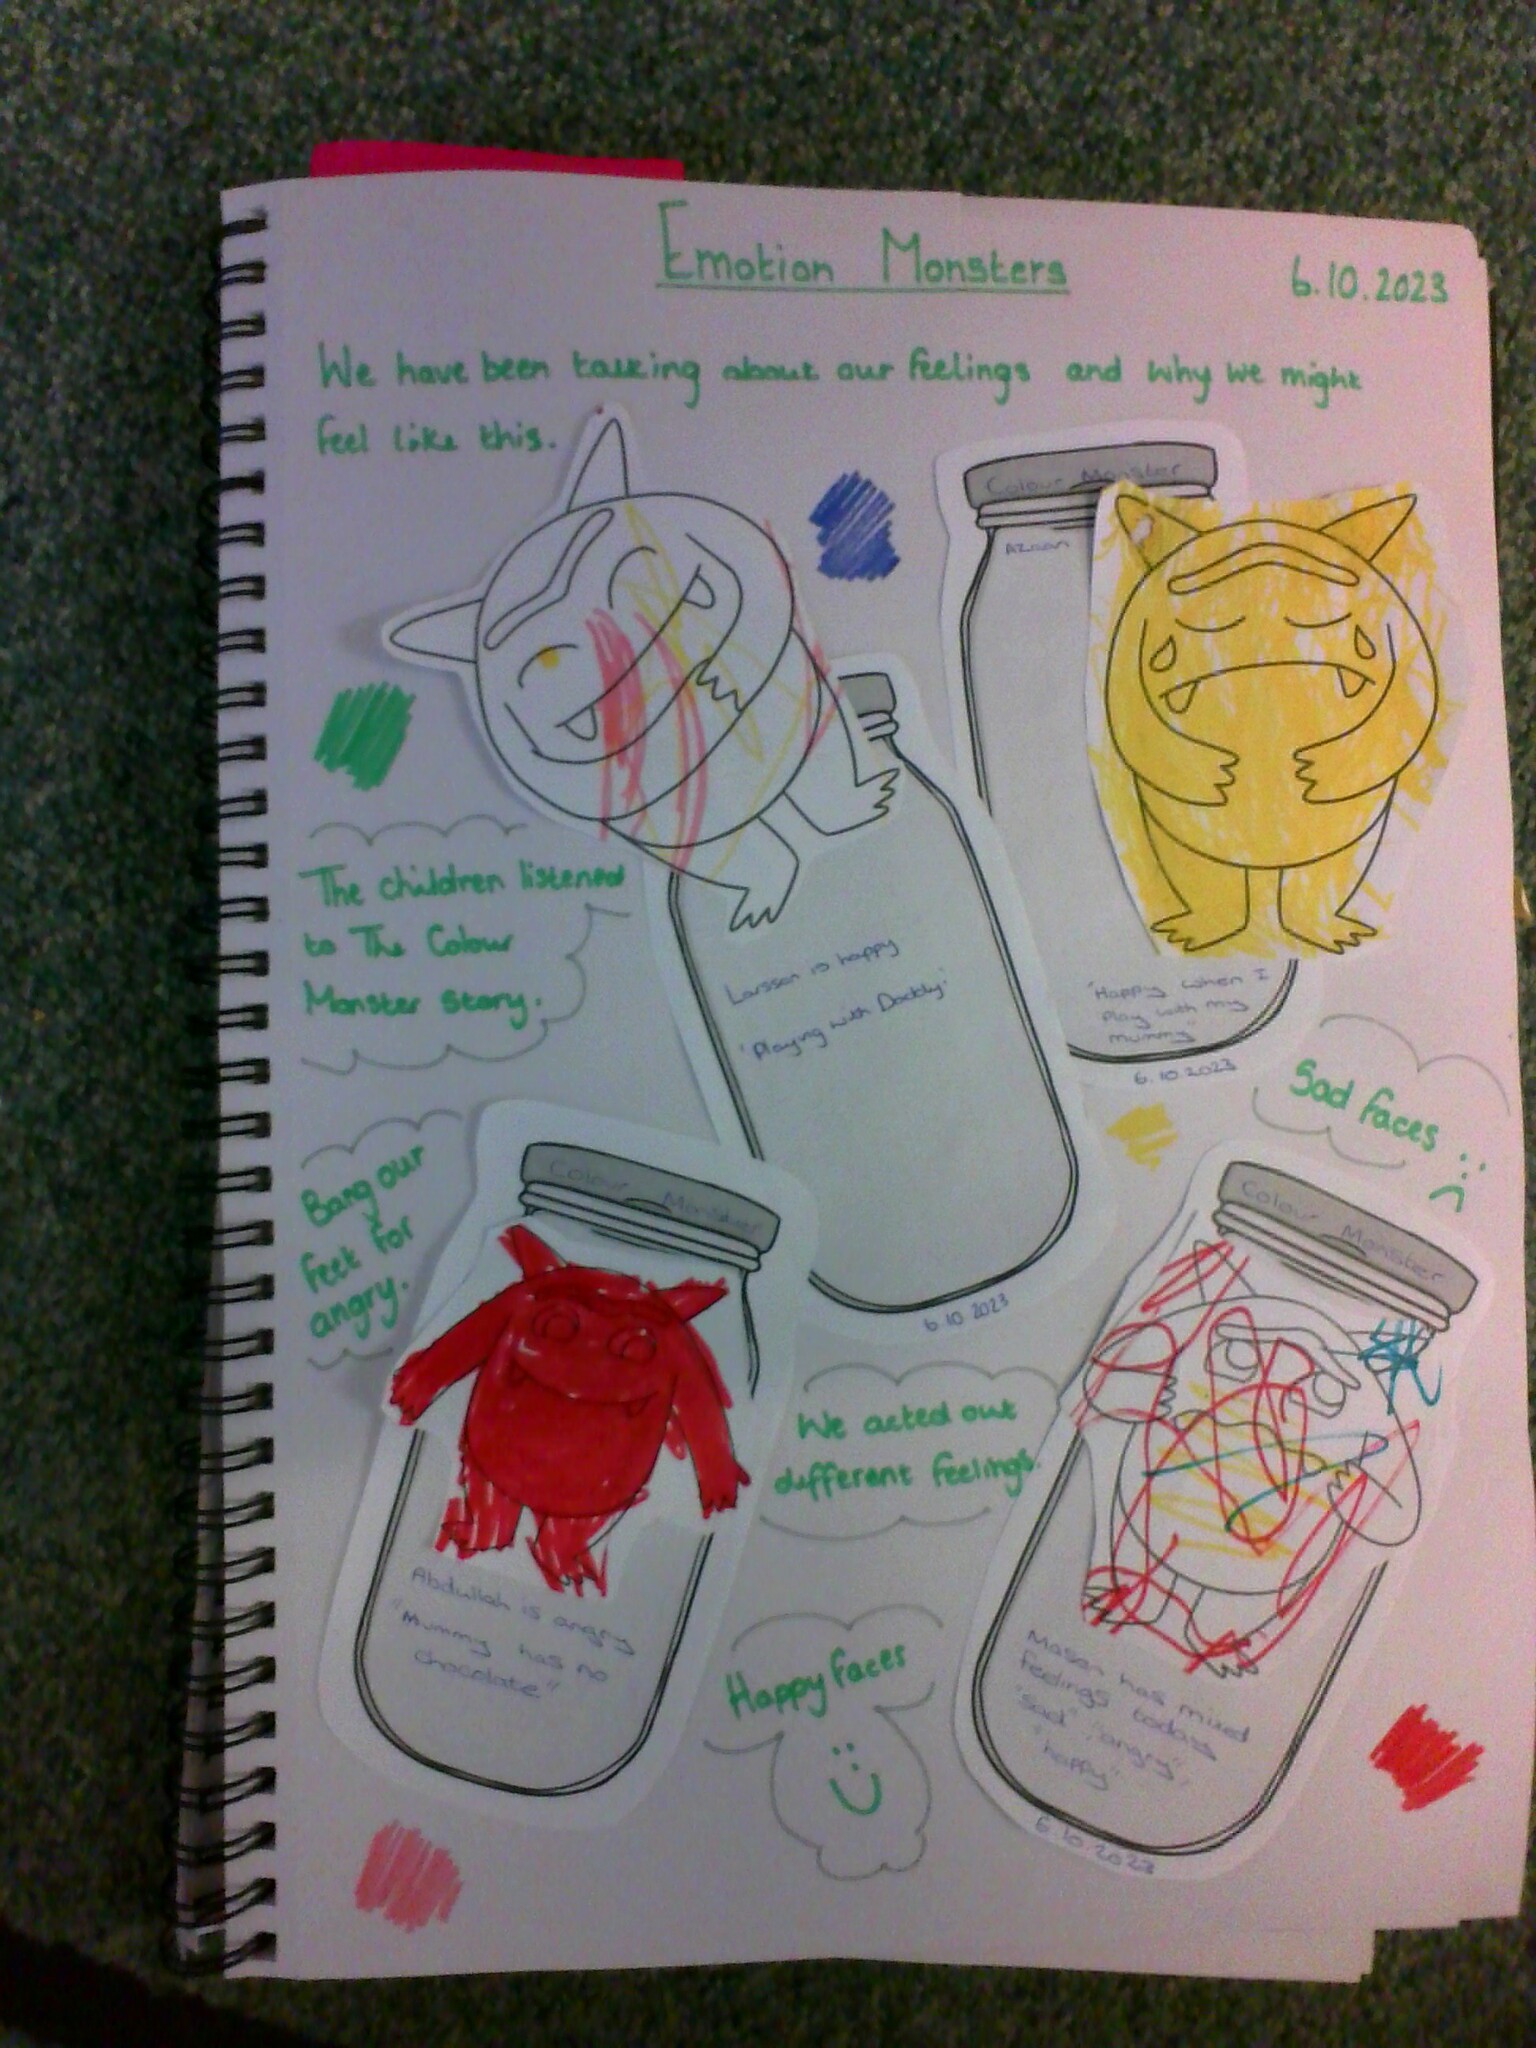 Emotion Monsters
6.10.2023
We have been talking about our feelings and why we might
feel like this.
Colour Monster
Azaan
"Happy when I
play with my
mummy"
6.10.2023
The children listened
to The Colour
Monster story.
Larsson is happy
'Playing with Daddy.'
6.10.2023
Sad faces :(
Bang our
feet for
angry.
Colour Monster
Abdullah is angry
"Mummy has no
chocolate."
We acted out
different feelings.
Colour Monster
Mason has mixed
feelings today
"sad" "angry",
"happy"
6.10.2023
Happy faces
:)